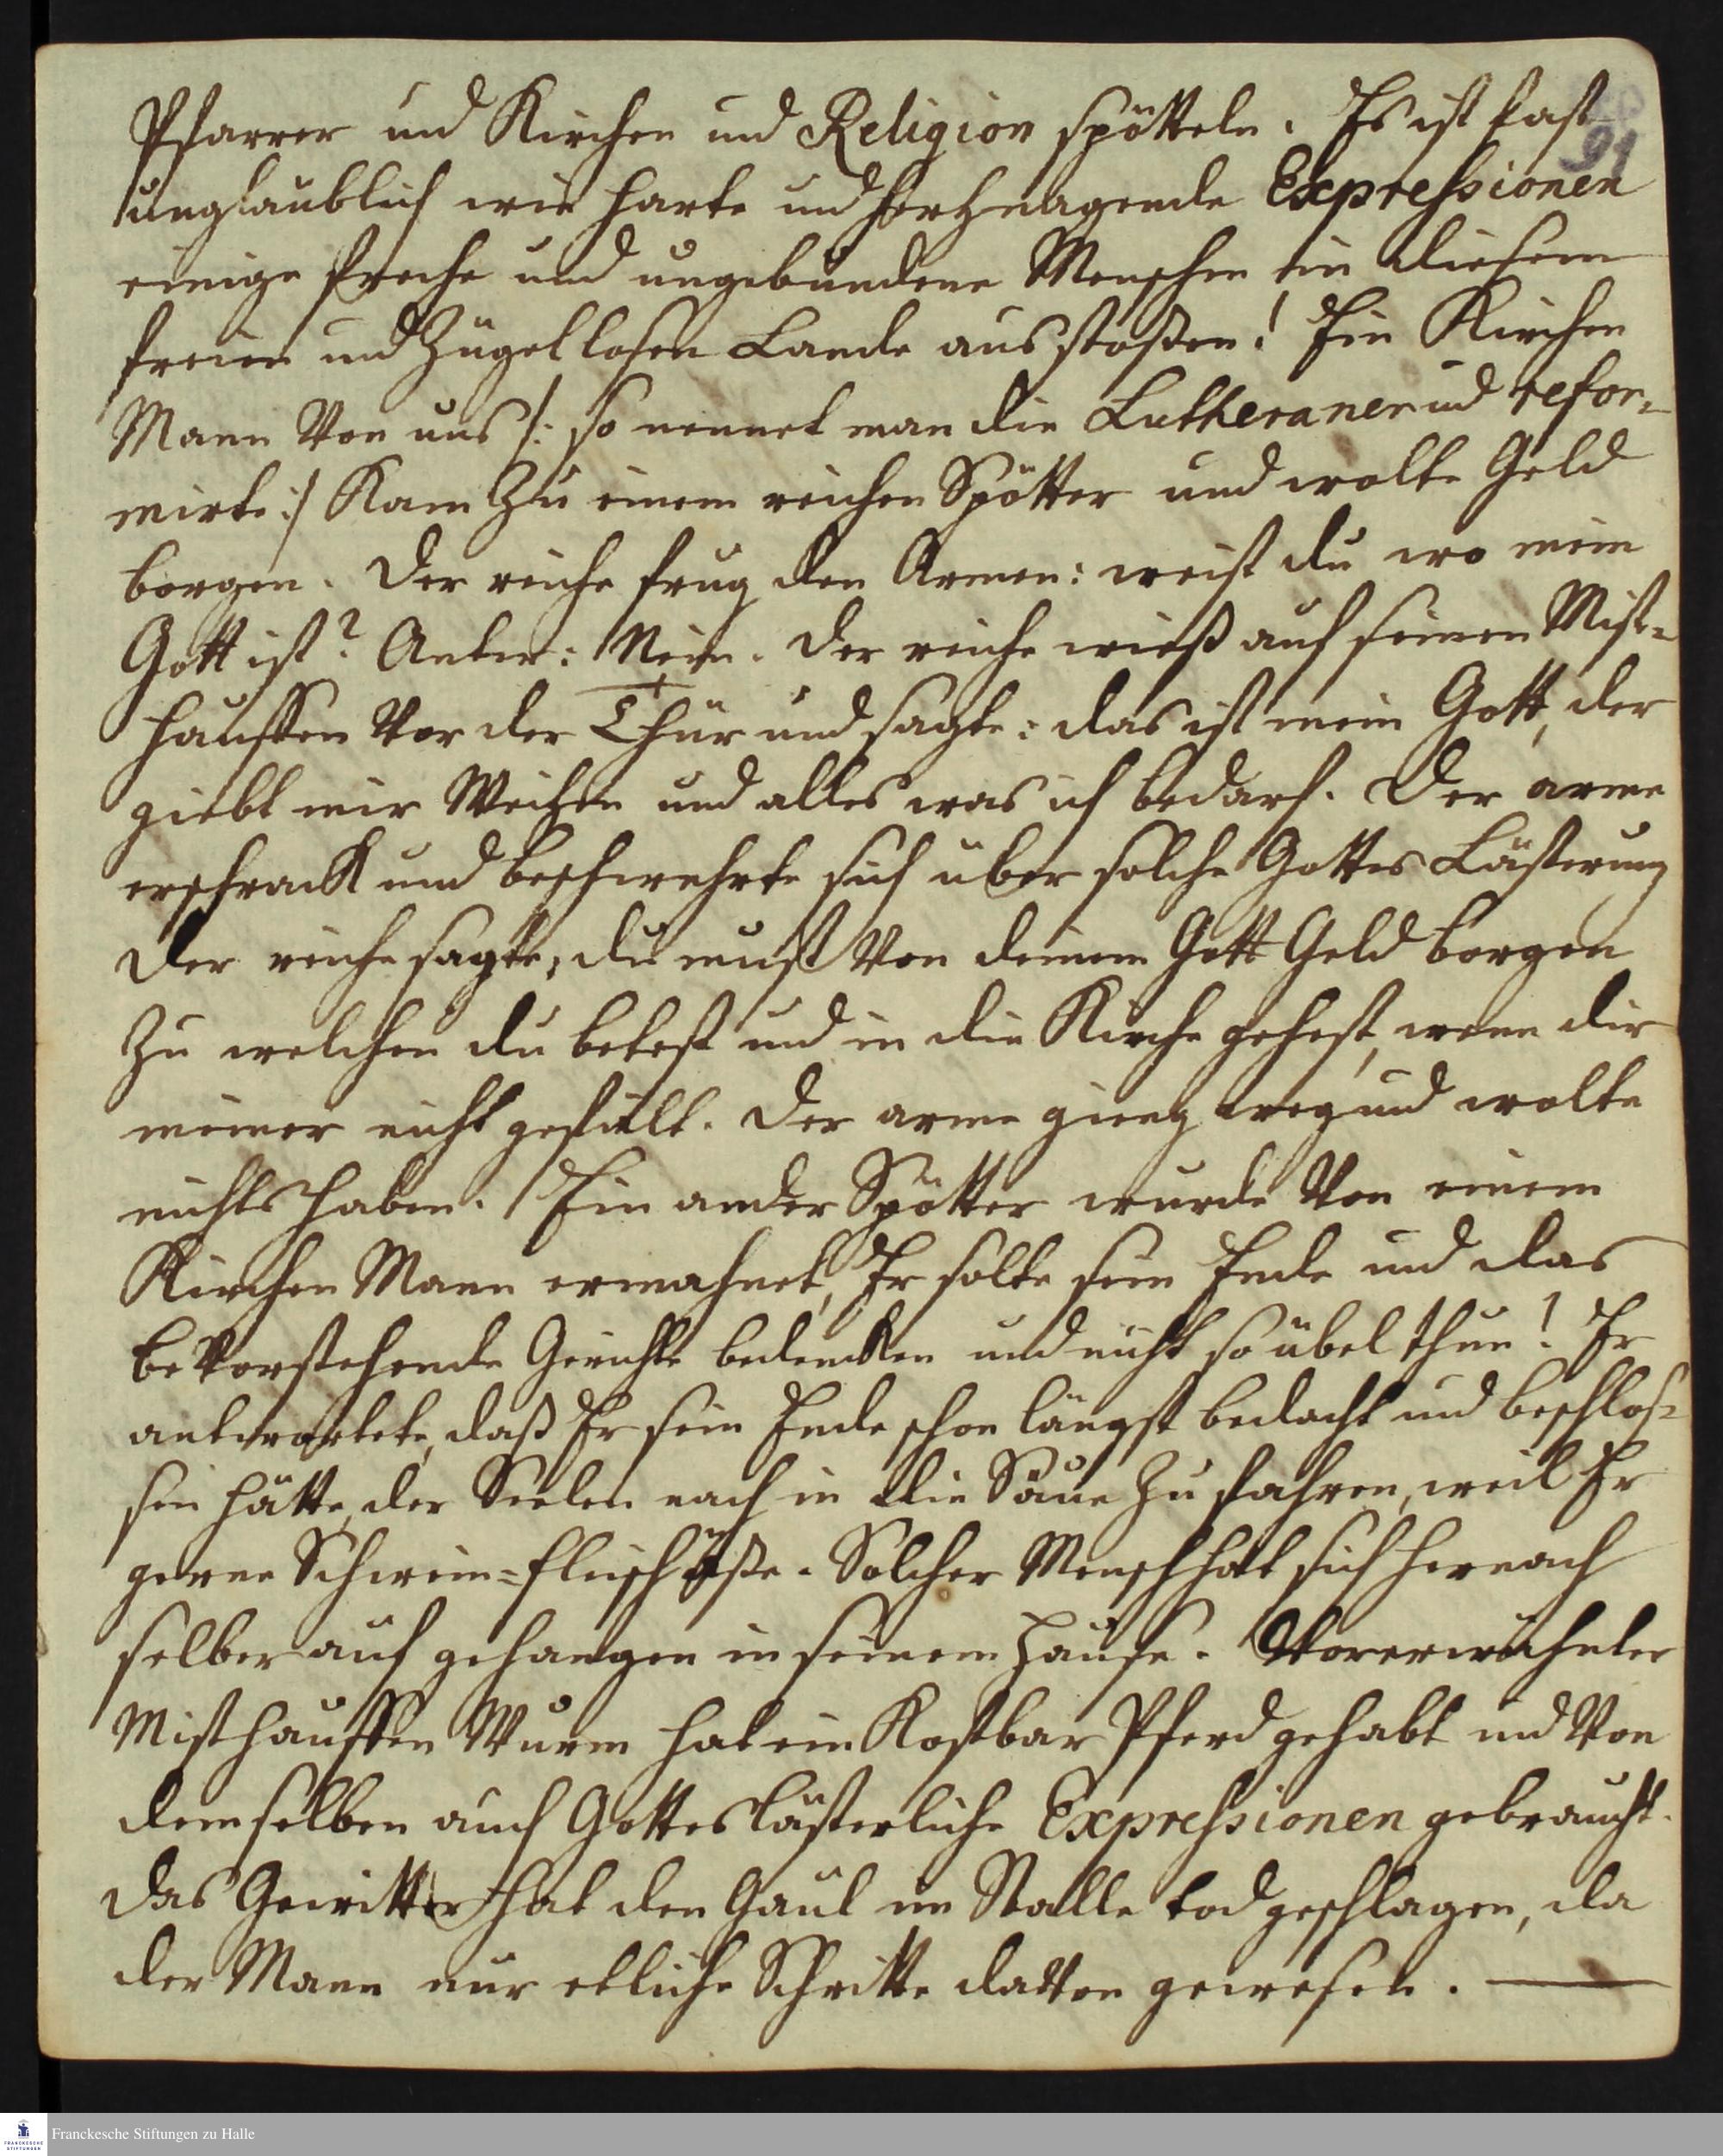 91
Pfarrer und Kirchen und Religion spötteln. Es ist fast
unglaublich wie harte und hertznagende Expressionen
einige freche und ungebundene Menschen in diesem
freien und Zügellosen Lande ausstoßen! Ein Kirchen
Mann von uns /: so nennet man die Lutheraner und refor-
mirte :/ Kam Zu einem reichen Spötter und wolte Geld
borgen. Der reiche frug den Armen: weist du wo mein
Gott ist? Antw: Nein. Der reiche wieß auf seinen Mist-
hauffen vor der Thür und sagte: das ist mein Gott, der
giebt mir Weitzen und alles was ich bedarf. Der arme
erschrack und beschwehrte sich über solche Gottes Lästerung
Der reiche sagte, du must von deinem Gott Geld borgen
Zu welchen du betest und in die Kirche gehest, wenn dir
meiner nicht gefällt. Der arme gieng weg und wolte
nichts haben. Ein ander Spötter wurde von einem
Kirchen Mann ermahnet, Er solte sein Ende und das
bevorstehende Gerichte bedencken und nicht so übel thun! Er
antwortete, daß Er sein Ende schon längst bedacht und beschlos-
sen hätte, der Seelen nach in die Säue Zu fahren, weil Er
gerne Schwein-fleisch äße. Solcher Mensch hat sich hernach
selber auf gehangen in seinem Hause. Vorerwehnter
Misthauffen Wurm hat ein Kostbar Pferd gehabt und von
demselben auch Gotteslästerliche Expressionen gebraucht.
Das Gewitter hat den Gaul im Stalle tod geschlagen, da
der Mann nur etliche Schritte davon gewesen.
Franckesche Stiftungen zu Halle